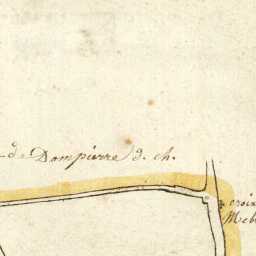 de Dompierre d. ch.
croix
Meb